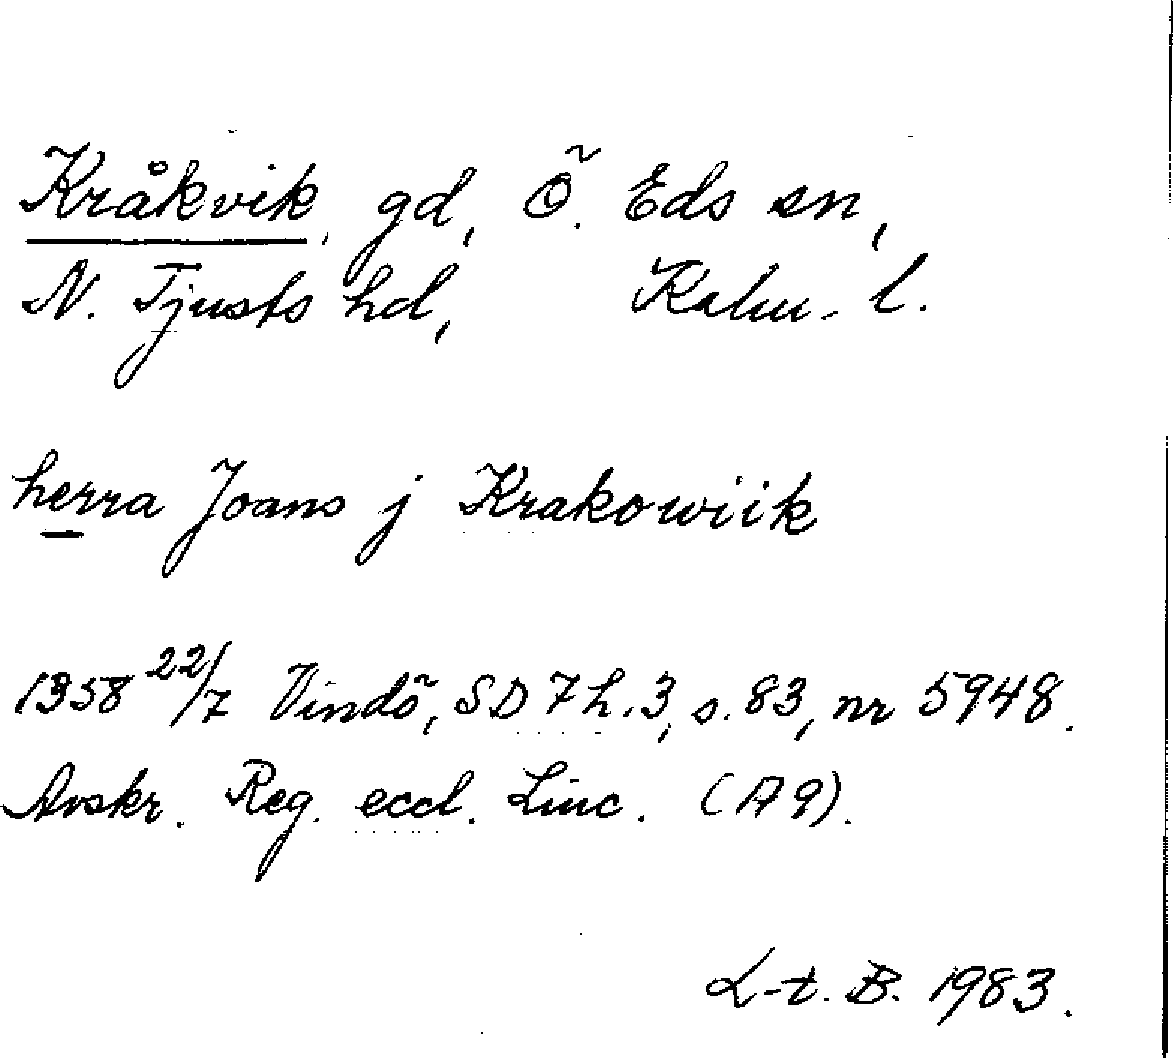 Kråkvik, gd, Ö. Eds sn,
N. Tjusts hd, Kalm. l.
herra Joans j Krakowiik
1358 22/7 Vindö, SD 7 h. 3, s. 83, nr 5948.
Avskr. Reg. eccl. Linc. (A 9).
L-t. B. 1983.